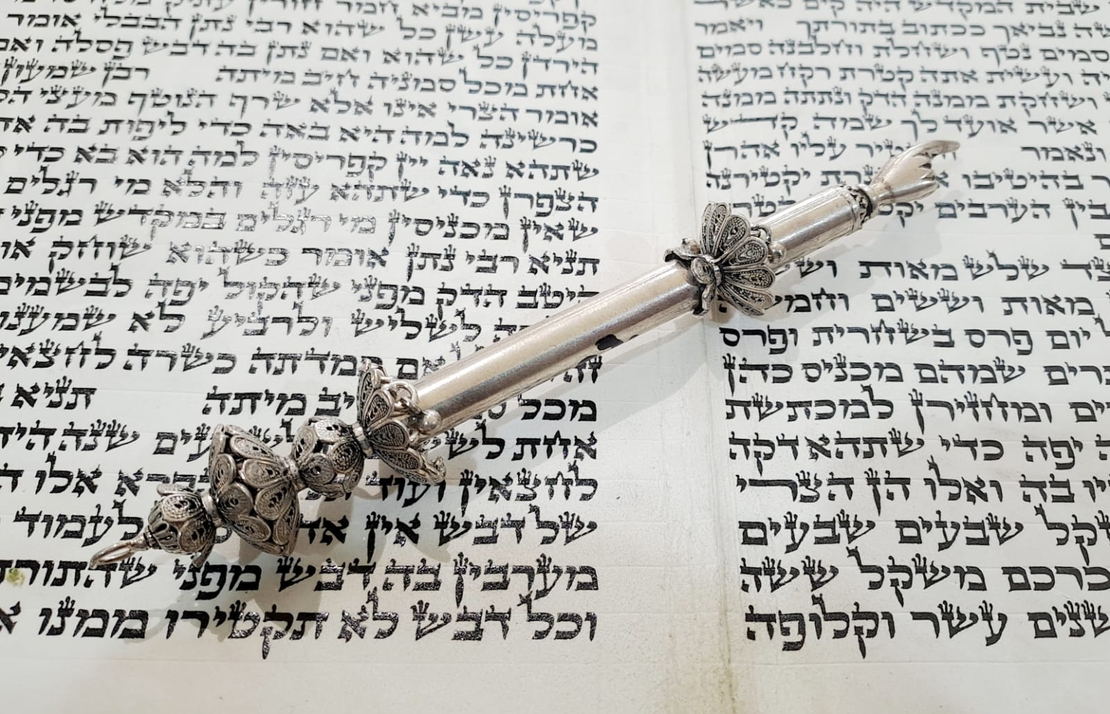 שבית המקדש היה קים כאשר
נביאך ככתוב בתורתך ויאמר
סמים נטף ושחלת וחלבנה סמים
ועשית אתה קטרת רקח מעשה
ושחקת ממנה הדק ונתתה ממנה
אשר אועד לך שמה קדש
ונאמר עליו אהרן
בהיטיבו יקטירנה
בין הערבים
שלש מאות
מאות וששים
יום פרס בשחרית ופרס
שמהם מכניס כהן
ומחזירן למכתשת
יפה כדי שתהא דקה
בה ואלו הן הצרי
שבעים שבעים
כרכם משקל ששה
עשר וקלופה
קפריסין מביא חמר חורין עתיק
מעלה עשן כל שהוא רבי נתן הבבלי אומר
הירדן כל שהוא ואם נתן בה דבש פסלה ואם
אחת מכל סמניה חיב מיתה רבן שמעון
אומר הצרי אינו אלא שרף הנוטף מעצי
כרשינה למה היא באה כדי ליפות בה
שתהא נאה יין קפריסין למה הוא בא כדי
הצפרן כדי שתהא עזה והלא מי רגלים
שאין מכניסין מי רגלים במקדש מפני
תניא רבי נתן אומר כשהוא שוחק
היטב הדק מפני שהקול יפה לבשמים
לשליש ולרביע לא שמענו
כמדתה כשרה לחצאין
מכל מיתה תניא
אחת שנה
לחצאין ועוד אלו
של דבש אין לעמוד
מערבין בה דבש מפני
וכל דבש לא תקטירו ממנו